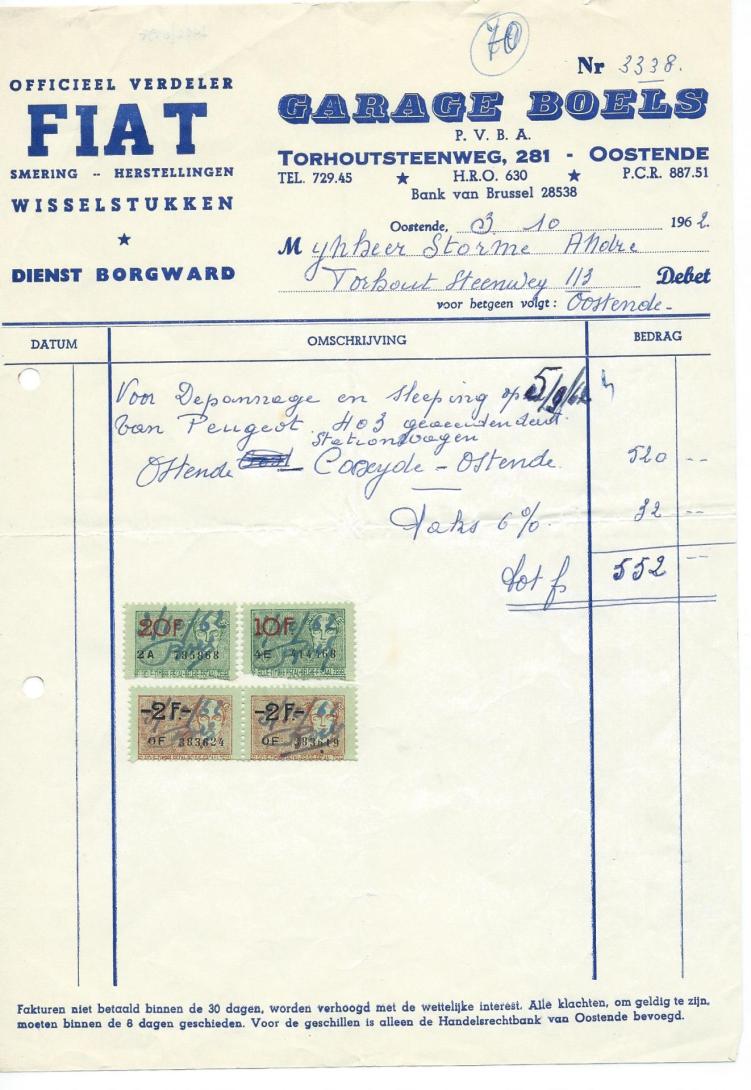 70
Nr 3338.
OFFICIEEL VERDELER
FIAT
SMERING -- HERSTELLINGEN
WISSELSTUKKEN
★
DIENST BORGWARD
GARAGE BOELS
P. V. B. A.
TORHOUTSTEENWEG, 281 - OOSTENDE
TEL. 729.45 ★ H.R.O. 630 ★ P.C.R. 887.51
Bank van Brussel 28538
Oostende, 3 10 1962.
Mynheer Storme Andre
Torhout Steenweg 113 Debet
voor hetgeen volgt: Oostende-
DATUM OMSCHRIJVING BEDRAG
Voor Depannage en sleeping op 5/9/62
van Peugeot 403
Stationwagen
Ostende Coxyde - Ostende. 520 --
Taks 6%. 32 --
Tot fr 552 --
20F. 10F.
2A 785868 4E
-2F.- -2F.-
OF 383624 OF 383619
Fakturen niet betaald binnen de 30 dagen, worden verhoogd met de wettelijke interest. Alle klachten, om geldig te zijn,
moeten binnen de 8 dagen geschieden. Voor de geschillen is alleen de Handelsrechtbank van Oostende bevoegd.